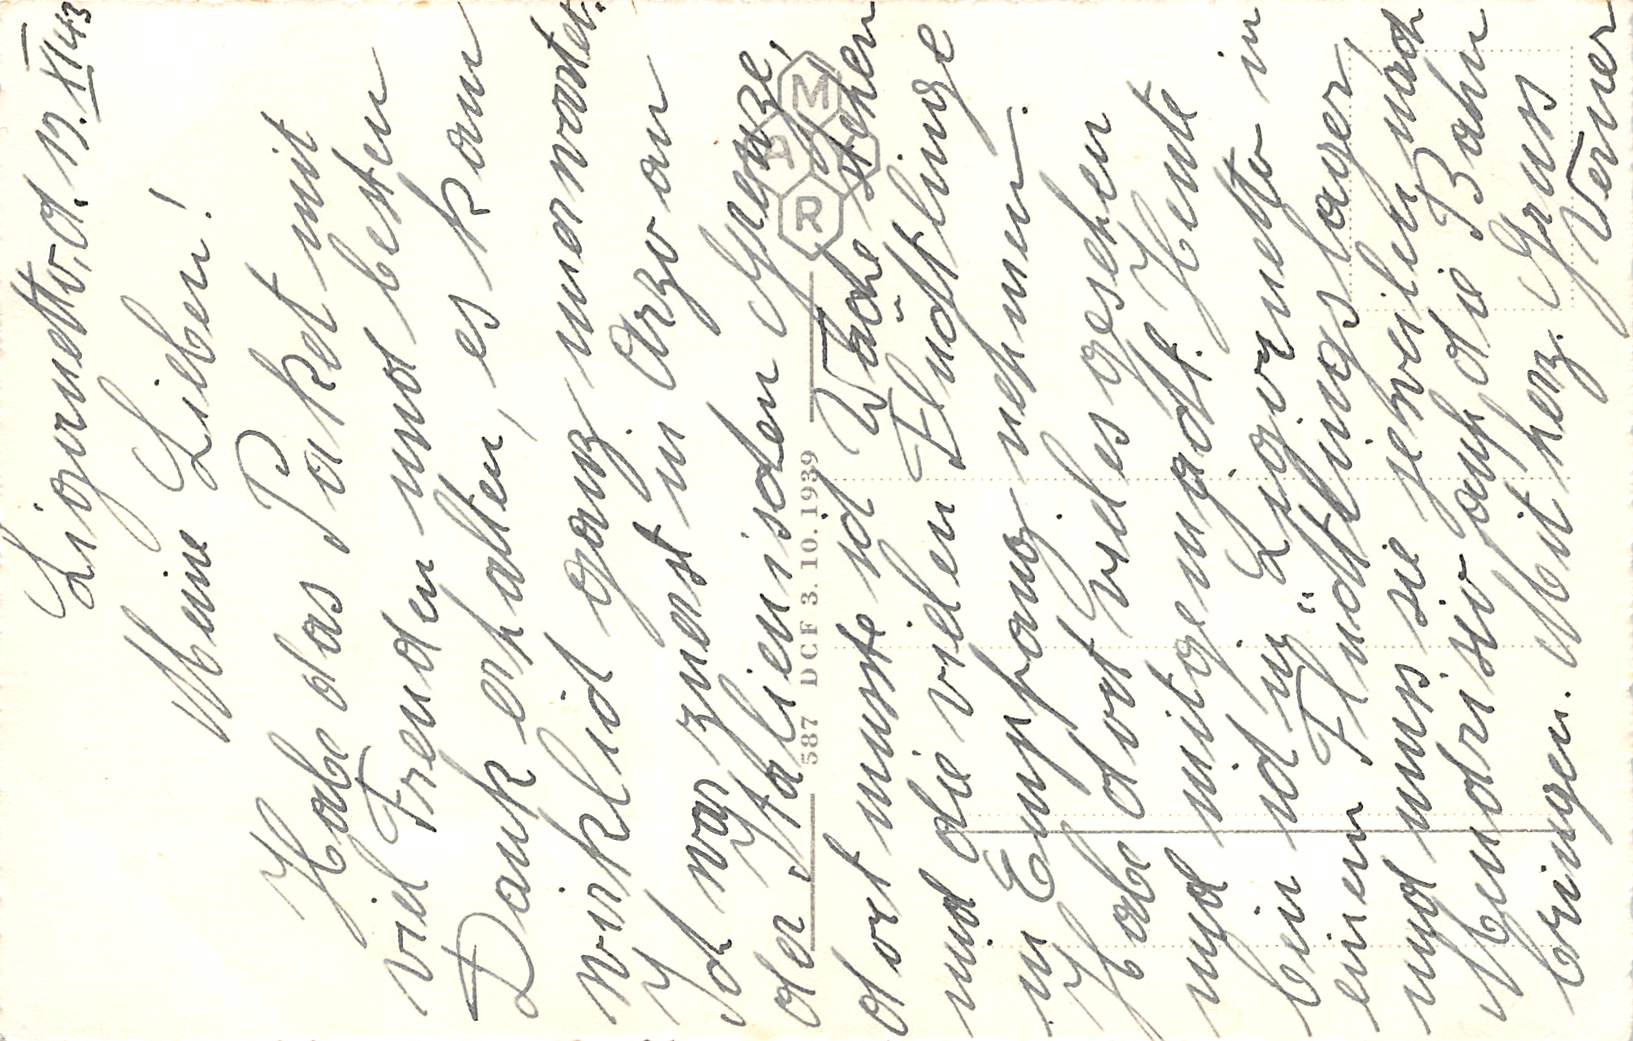 Ligornetto, d. 19. XI 43
Meine Lieben!
Habe das Paket mit
viel Freuden und besten
Dank erhalten, es kam
wirklich ganz unerwartet.
Ich war zuerst in Arzo an
der Italienischen Grenze,
dort musste ich Wache stehen
und die vielen Flüchtlinge
in Empfang nehmen.
Habe dort vieles gesehen
und mitgemacht. Heute
bin ich in Ligornetto in
einem Flüchtlingslager
und muss sie jeweilen nach
Mendrisio auf die Bahn
bringen. Mit herz. Gruss
Werner
587 DCF 3.10.1939
M
A
R